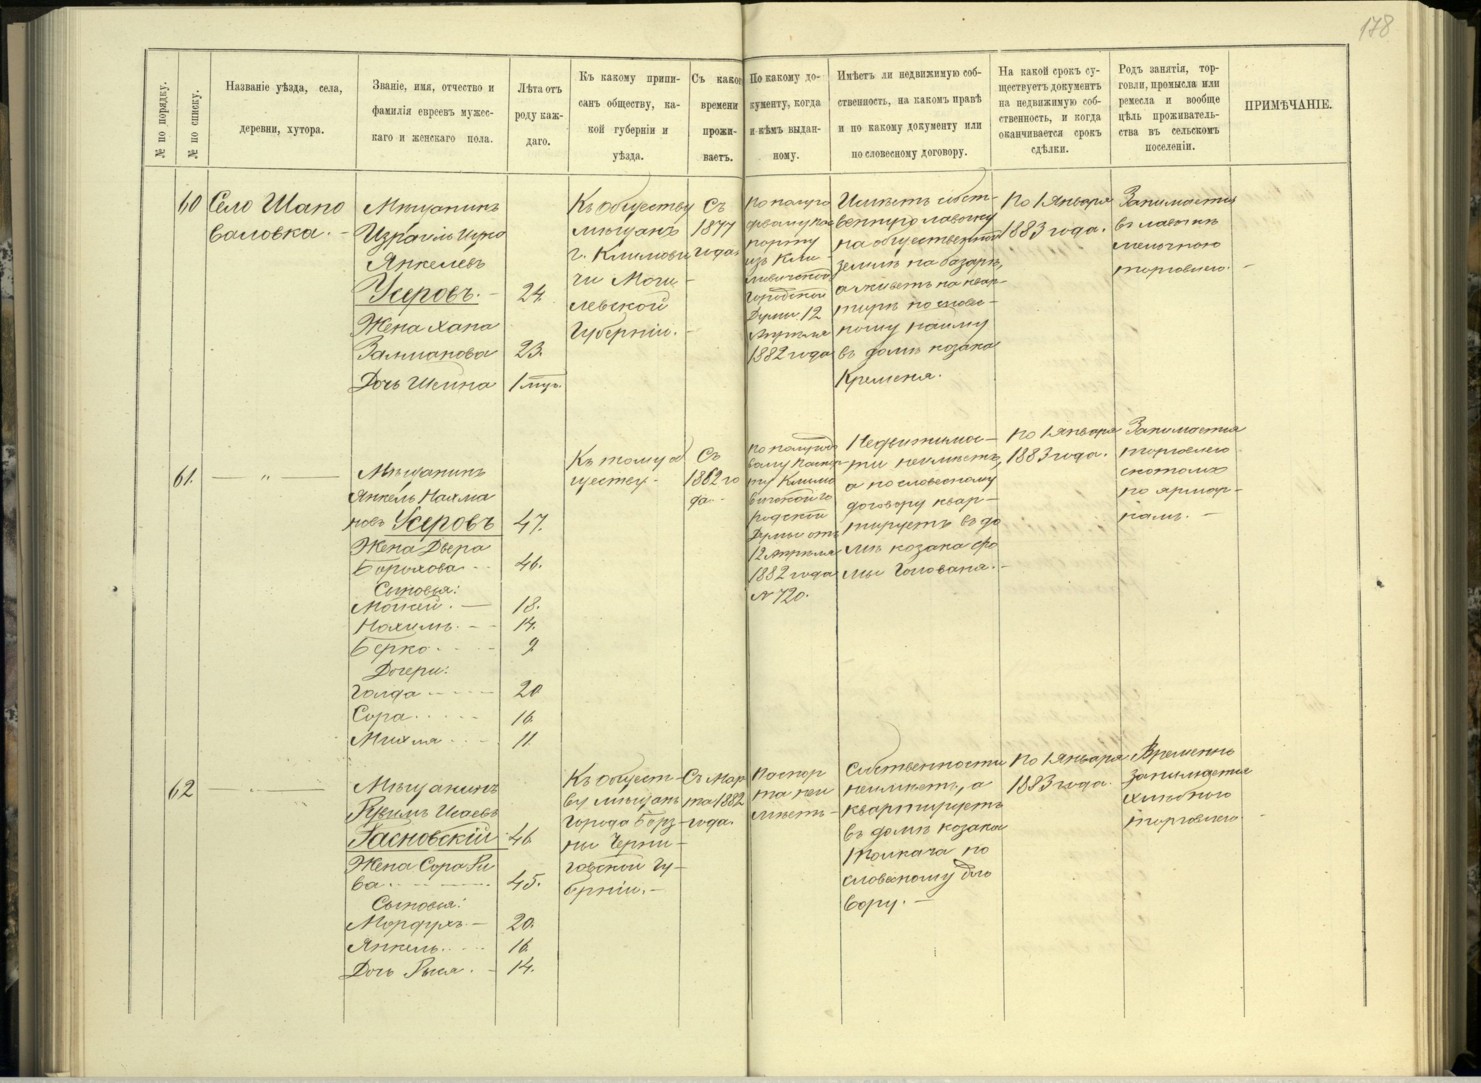 178
№ по порядку.
№ по списку.
Названіе уѣзда, села,
деревни, хутора.
Званіе, имя, отчество и
фамилія евреевъ мужес-
каго и женскаго пола.
Лѣта отъ
роду каж-
даго.
Къ какому припи-
санъ обществу, ка-
кой губерніи и
уѣзда.
Съ какого
времени
прожи-
ваетъ.
По какому до-
кументу, когда
и кѣмъ выдан-
ному.
Имѣетъ ли недвижимую соб-
ственность, на какомъ правѣ
и по какому документу или
по словесному договору.
На какой срокъ су-
ществуетъ документъ
на недвижимую соб-
ственность, и когда
оканчивается срокъ
сдѣлки.
Родъ занятія, тор-
говли, промысла или
ремесла и вообще
цѣль проживатель-
ства въ сельскомъ
поселеніи.
ПРИМѢЧАНІЕ.
60
Село Шапо
валовка. -
Мѣщанинъ
Израиль Ицко
Янкелевъ
Усеровъ. - 24.
Жена Хана
Залманова 23.
Дочь Шейна 1 мѣс.
Къ обществу
мѣщанъ
г. Климови
чи Моги-
левской
губерніи. -
Съ
1877
года
По полуго
довому пас
порту
изъ Кли-
мовичской
городской
Думы 12
Апрѣля
1882 года
Имѣетъ собст-
венную лавочку
на общественной
землѣ на базарѣ,
а живетъ на квар-
тирѣ по слове-
ному найму
въ домѣ козака
Кременя.
По 1 Января
1883 года.
Занимается
въ лавкѣ
мелочною
торговлею. -
61.
— " —
Мѣщанинъ
Янкель Нахма
новъ Усеровъ 47.
Жена Двера
Борохова 46.
Сыновья:
Мойсей. — 18.
Нохимъ. - - 14.
Берко 9
Дочери:
Голда 20
Сора 16
Михля 11
Къ тому об
ществу -
Съ
1862 го
да -
По полугодо
вому паспор
ту Климо
вичской го
родской
Думы отъ
12 Апрѣля
1882 года
№ 720.
Недвижимос-
ти не имѣетъ,
а по словесному
договору квар-
тируетъ въ до
мѣ козака Фо
мы Голована. -
По 1 Января
1883 года.
Занимается
торговлею
скотомъ
по ярмар-
камъ. -
62
Мѣщанинъ
Рувимъ Исаевъ
Гасновскій 46
Жена Сора Ри
ва 45.
Сыновья:
Мордухъ - 20.
Янкель 16
Дочь Рыся. - 14.
Къ общест-
ву мѣщанъ
города Борз-
ны Черни-
говской гу-
берніи. -
Съ Мар
та 1882
года.
Паспор
та не и
мѣетъ -
Собственности
не имѣетъ, а
квартируетъ
въ домѣ козака
Толкача по
словесному дого
вору. —
По 1 Января
1883 года.
Временно
занимается
хлѣбною
торговлею -